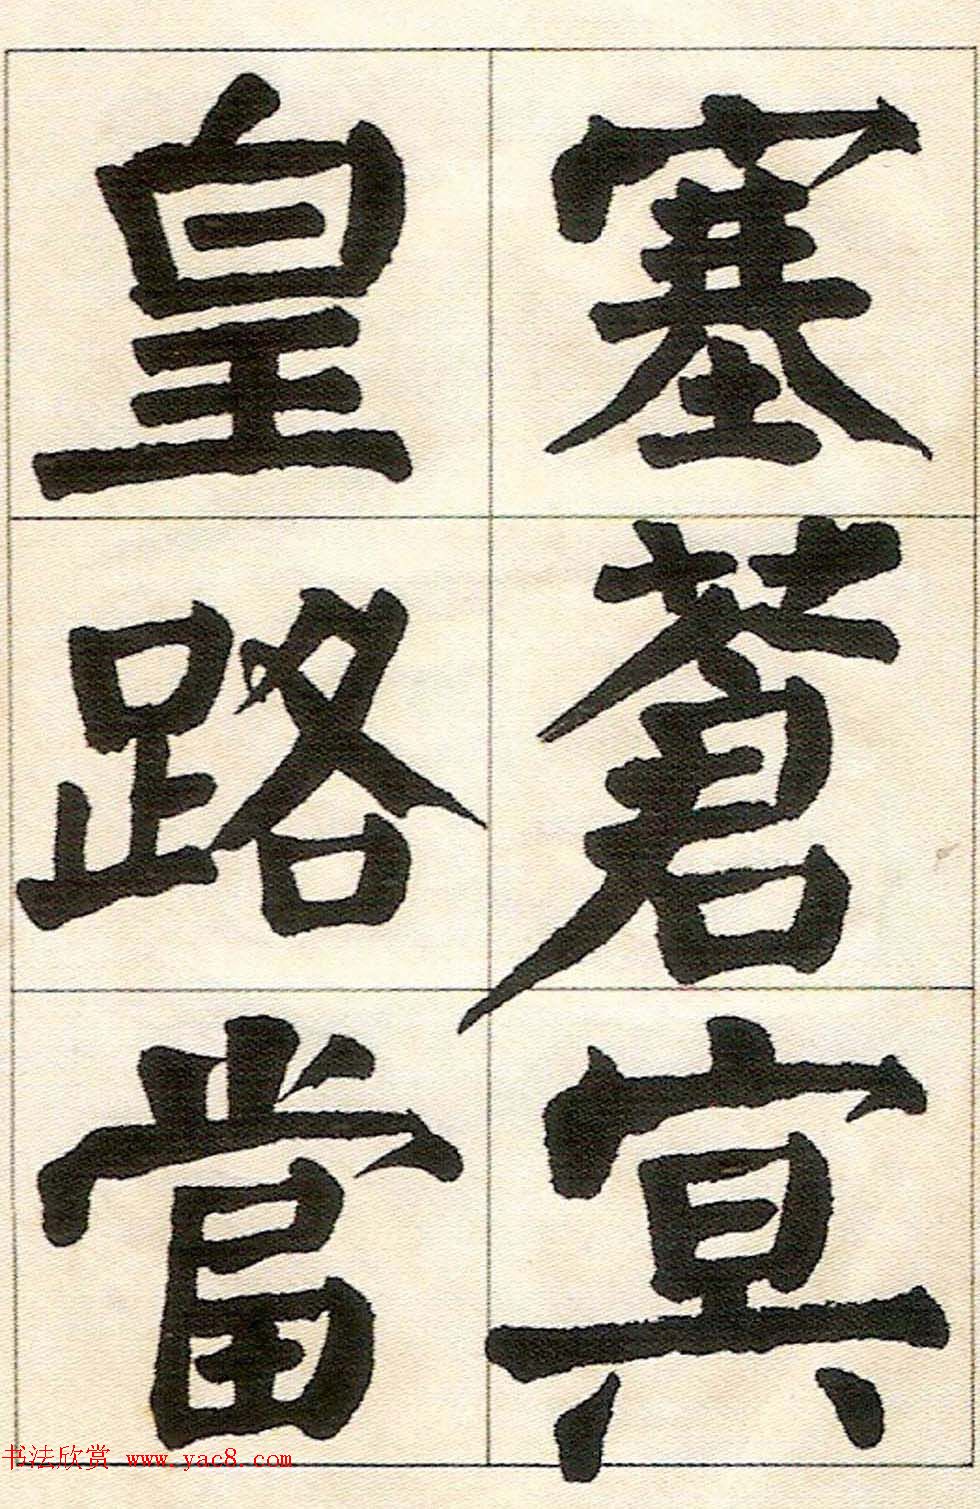 塞蒼冥
皇路當
书法欣赏 www.yac8.com